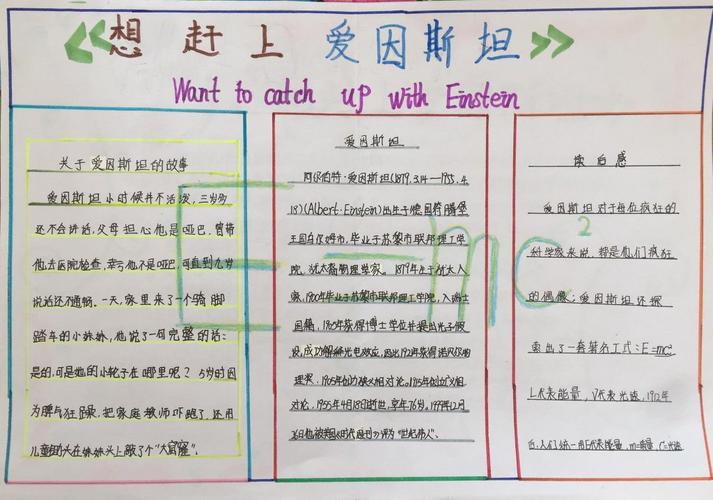 《想 赶上 爱因斯坦》
Want to catch up with Einstein
关于爱因斯坦的故事
爱因斯坦小时候并不活泼，三岁多
还不会讲话，父母担心他是哑巴，曾带
他去医院检查，幸亏他不是哑巴，可直到九岁
说话还不通畅。一天，家里来了一个骑脚
踏车的小妹妹，他说了一句完整的话：
是的，可是她的小轮子在哪里呢？5岁时因
为脾气狂躁，把家庭教师吓跑了，还用
儿童锄头在妹妹头上敲了个“大窟窿”。
爱因斯坦
阿尔伯特·爱因斯坦(1879.3.14—1955.4.
18)(Albert·Einstein)出生于德国符腾堡
王国乌尔姆市，毕业于苏黎市联邦理工学
院，犹太裔物理学家。1879年生于犹太人
家，1900年毕业于苏黎市联邦理工学院，入瑞士
国籍，1905年获得博士学位并提出光子假
设，成功解释光电效应，因此1921年获得诺贝尔物
理奖，1905年创力狭义相对论，1915年创立广义相
对论，1955年4月18日逝世，享年76岁，1999年12月
26日他被美国时代周刊评为“世纪伟人”。
读后感
爱因斯坦对于每位疯狂的
科学家来说，都是他们疯狂
的偶像；爱因斯坦还探
索出了一套著名公式：E=mc²
L代表能量，V代表光速，1912年
后，人们统一用E代表能量，m=质量，C=光速
E=mc²